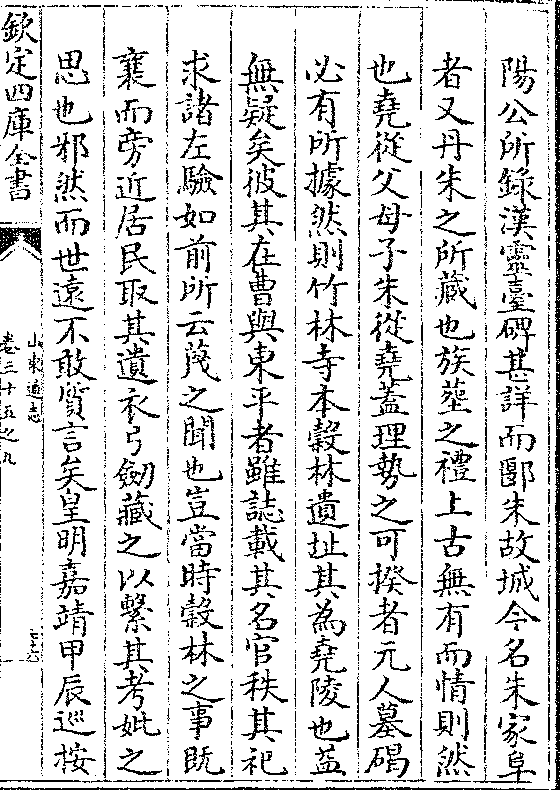 陽公所錄漢靈臺碑甚詳而郾朱故城今名朱家阜
者又丹朱之所藏也族塟之禮上古無有而情則然
也堯從父母子朱從堯葢理勢之可揆者元人墓碣
必有所據然則竹林寺本糓林遺址其為堯陵也葢
無疑矣彼其在曹與東平者雖誌載其名官秩其祀
求諸左驗如前所云蔑之聞也豈當時糓林之事既
襄而旁近居民取其遺衣弓劒藏之以繫其考妣之
思也邪然而世遠不敢質言矣皇明嘉靖甲辰巡按
欽定四庫全書
山東通志
卷三十五之九